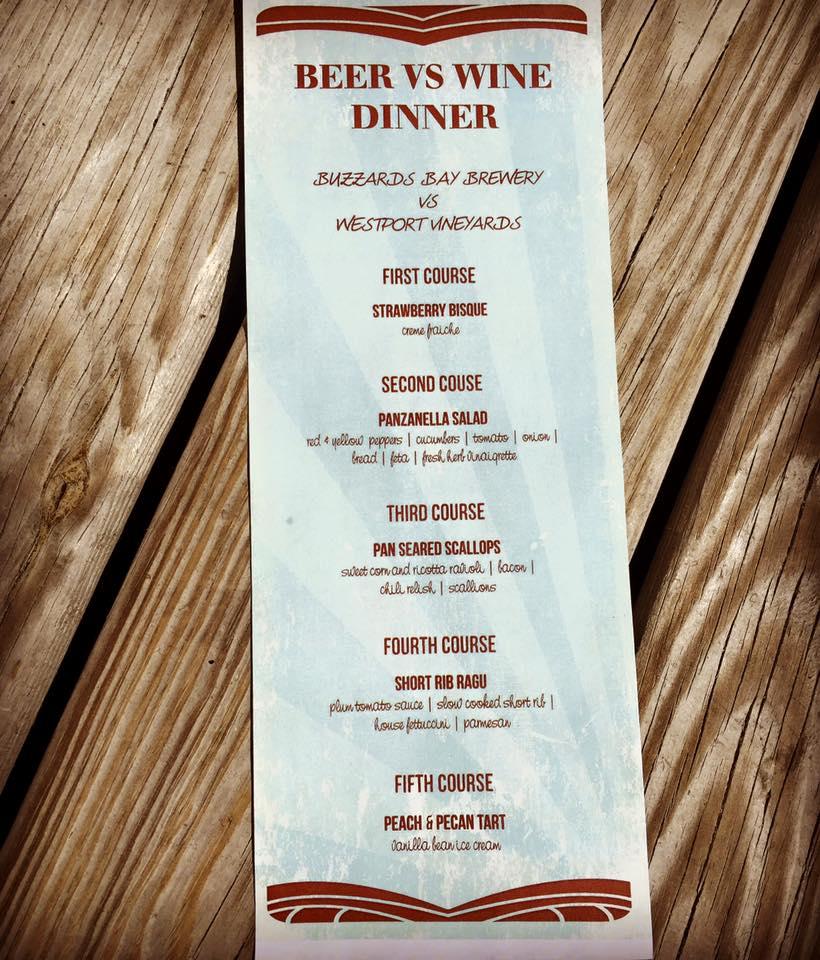 BEER VS WINE
DINNER
BUZZARDS BAY BREWERY
VS
WESTPORT VINEYARDS
FIRST COURSE
STRAWBERRY BISQUE
creme fraiche
SECOND COUSE
PANZANELLA SALAD
red & yellow peppers | cucumbers | tomato | onion |
bread | feta | fresh herb vinaigrette
THIRD COURSE
PAN SEARED SCALLOPS
sweet corn and ricotta ravioli | bacon |
chili relish | scallions
FOURTH COURSE
SHORT RIB RAGU
plum tomato sauce | slow cooked short rib |
house fettuccini | parmesan
FIFTH COURSE
PEACH & PECAN TART
vanilla bean ice cream